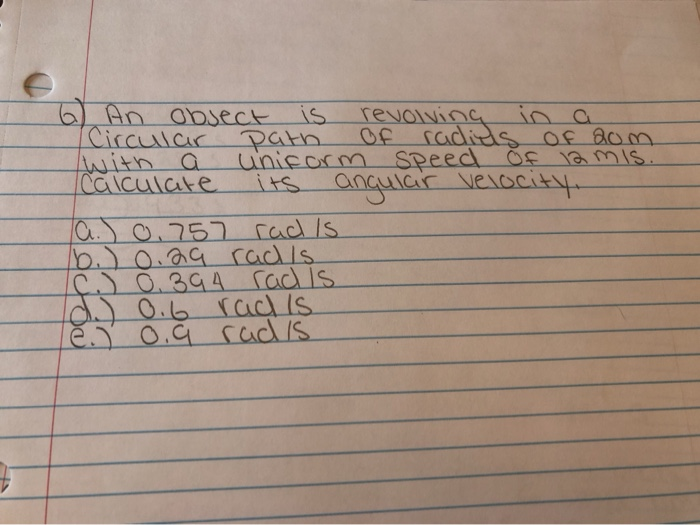 6) An object is revolving in a
Circular path of radius of 20m
with a uniform speed of 12 m/s.
Calculate its angular velocity.
a.) 0.757 rad/s
b.) 0.29 rad/s
c.) 0.394 rad/s
d.) 0.6 rad/s
e.) 0.9 rad/s